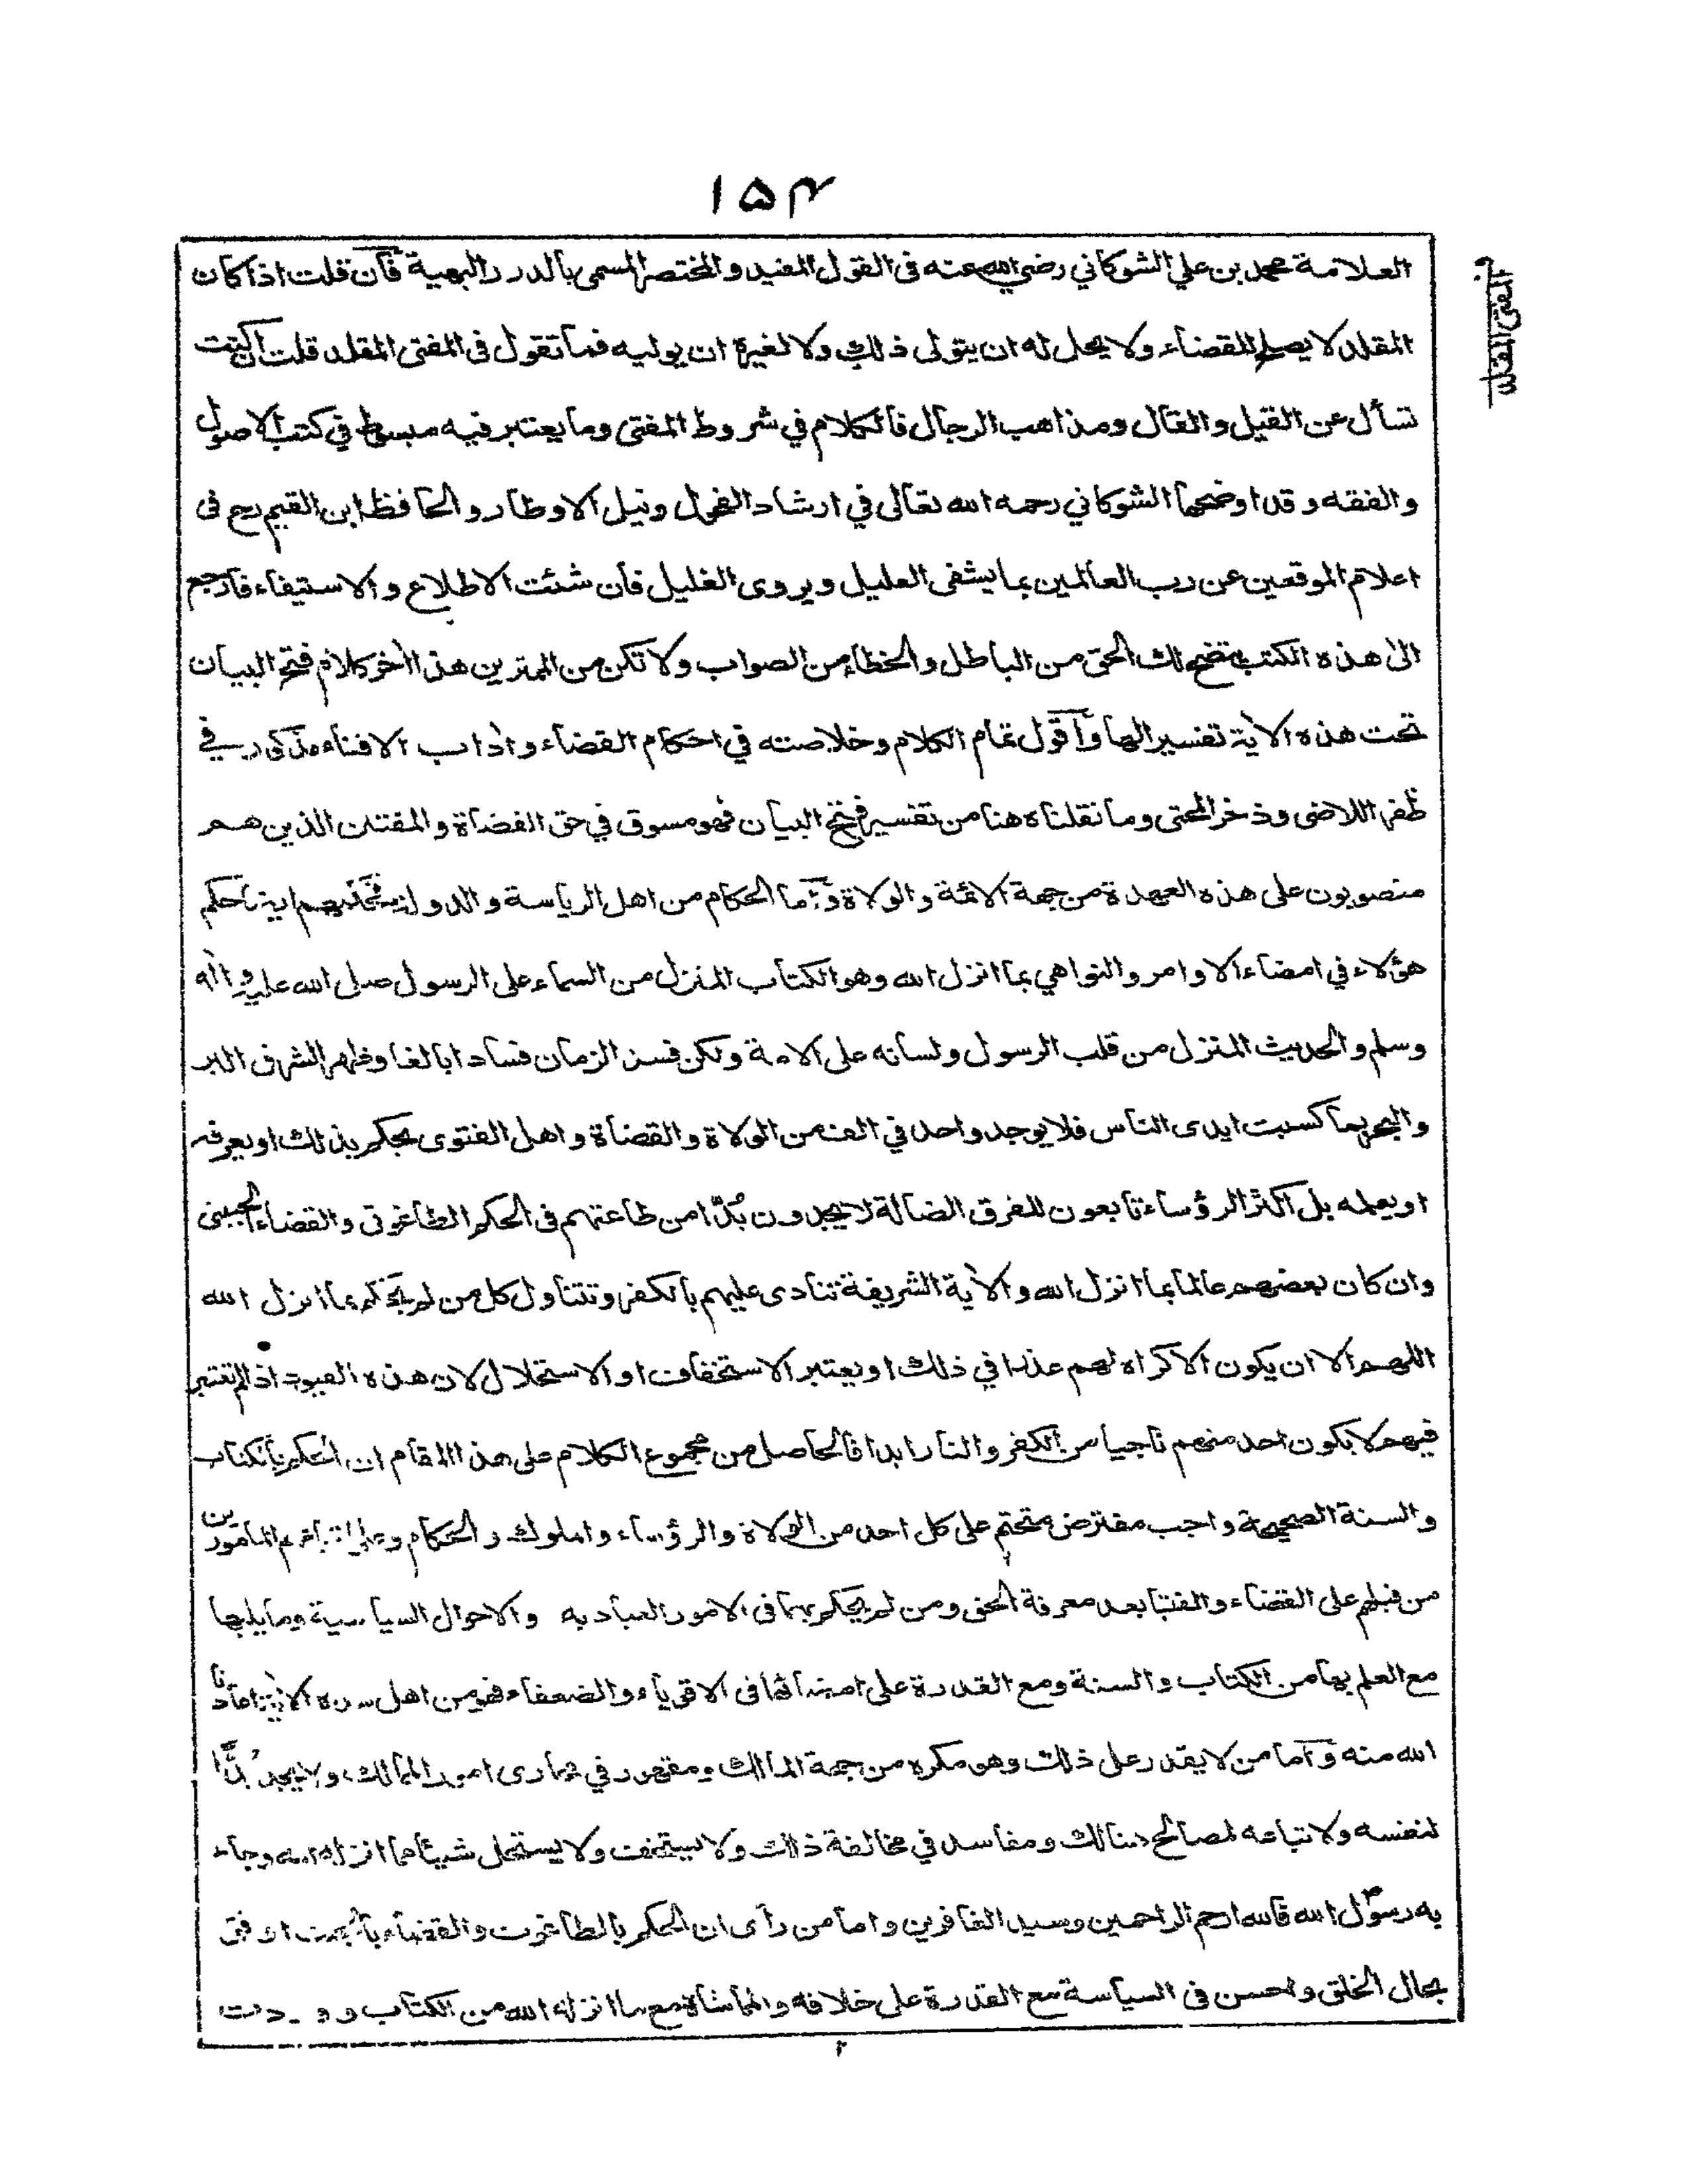 ۱۵۴
العلامة محمد بن علي الشوكاني رضي الله عنه فى القول المفيد والمختصر المسمى بالدرر البهية فان قلت اذا كان
المقلد لا يصلح للقضاء ولا يحل له ان يتولى ذلك ولا لغيره ان يوليه فما تقول فى المفتى المقلد قلت ان كنت
تسأل عن القيل والقال ومذاهب الرجال فالكلام في شروط المفتى وما يعتبر فيه مبسوط في كتب الاصول
والفقه وقد اوضحها الشوكاني رحمه الله تعالى في ارشاد الفحول ونيل الاوطار والحافظ ابن القيم رح فى
اعلام الموقعين عن رب العالمين بما يشفى العليل ويروى الغليل فان شئت الاطلاع والاستيفاء فارجع
الى هذه الكتب يتضح لك الحق من الباطل والخطاء من الصواب ولا تكن من الممترين هذا اٰخر كلام فتح البيان
تحت هذه الاٰية تفسير الها واقول تمام الكلام وخلاصته في احكام القضاء واٰداب الافتاء مذكور في
ظفر اللاضى وذخر المحتى وما نقلناه هنا من تفسير فتح البيان فهو مسوق في حق القضاة والمفتين الذين هم
منصوبون على هذه العهدة من جهة الائمة والولاة واما الحكام من اهل الرياسة والدول فحكمهم ايضا حكم
هؤلاء في امضاء الاوامر والنواهي بما انزل الله وهو الكتاب المنزل من السماء على الرسول صلى الله عليه واٰله
وسلم والحديث المنزل من قلب الرسول ولسانه على الامة ولكن فسد الزمان فسادا بالغا وظهر الشر فى البر
والبحر بما كسبت ايدى الناس فلا يوجد واحد في الف من الولاة والقضاة واهل الفتوى يحكم بذلك او يعرفه
او يعلمه بل اكثر الرؤساء تابعون للفرق الضالة لا يجدون بُدّا من طاعتهم فى الحكم الطاغوتى والقضاء الجبتى
وان كان بعضهم عالما بما انزل الله والاٰية الشريفة تنادى عليهم بالكفر وتتناول كل من لم يحكم بما انزل الله
اللهم الا ان يكون الاكراه لهم عذرا في ذلك او يعتبر الاستخفاف او الاستحلال لان هذه القيود اذا لم تعتبر
فيهم لا يكون احد منهم ناجيا من الكفر والنار ابدا فالحاصل من مجموع الكلام على هذا المقام ان الحكم بالكتاب
والسنة الصحيحة واجب مفترض متحتم على كل احد من الولاة والرؤساء والملوك والحكام وعلى اتباعهم المأمورين
من قبلهم على القضاء والفتيا بعد معرفة الحق ومن لم يحكم بهما فى الامور العبادية والاحوال السياسية وما يليها
مع العلم بها من الكتاب والسنة ومع القدرة على امضائها فى الاقوياء والضعفاء فهو من اهل هذه الاٰية اعاذنا
الله منه واما من لا يقدر على ذلك وهو مكره من جهة الممالك ومقهور في مجارى امور الممالك ولا يجد بُدًّا
لنفسه ولاتباعه لمصالح هنالك ومفاسد في مخالفة ذلك ولا يستخف ولا يستحل شيئا مما انزله الله وجاء
به رسول الله فالله ارحم الراحمين وسيد الغافرين واما من رأى ان الحكم بالطاغوت والقضاء بالجبت اوفق
بحال الخلق واحسن فى السياسة مع القدرة على خلافه والمماشاة مع ما انزله الله من الكتاب و